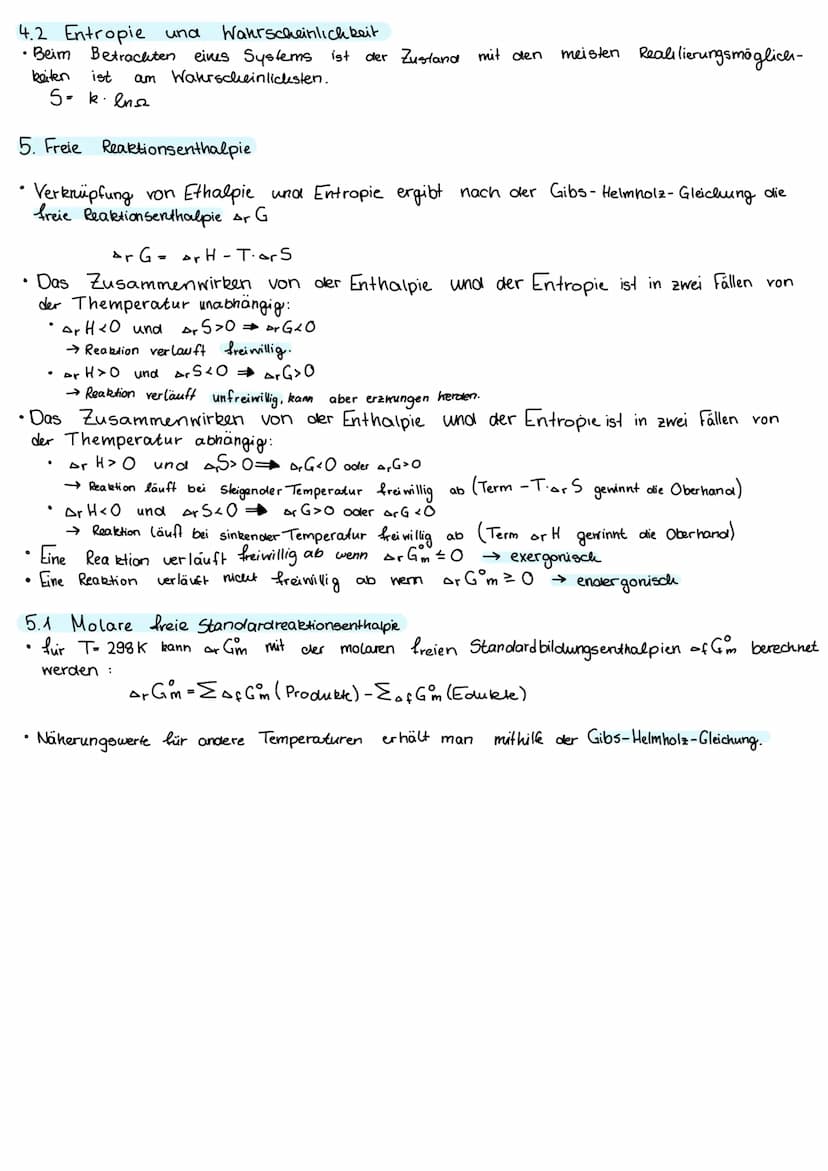 4.2 Entropie und Wahrscheinlichkeit
• Beim Betrachten eines Systems ist der Zustand mit den meisten Realilierungsmöglich-
keiten ist am Wahrscheinlichsten.
S = k · ln Ω
5. Freie Reaktionsenthalpie
• Verknüpfung von Ethalpie und Entropie ergibt nach der Gibs-Helmholz-Gleichung die
freie Reaktionsenthalpie ΔrG
ΔrG = ΔrH - T·ΔrS
• Das Zusammenwirken von der Enthalpie und der Entropie ist in zwei Fällen von
der Themperatur unabhängig:
• ΔrH<0 und ΔrS>0 ⇒ ΔrG<0
→ Reaktion verlauft freiwillig.
• ΔrH>0 und ΔrS<0 ⇒ ΔrG>0
→ Reaktion verläuft unfreiwillig, kann aber erzwungen werden.
• Das Zusammenwirken von der Enthalpie und der Entropie ist in zwei Fällen von
der Themperatur abhängig:
• ΔrH>0 und ΔrS>0 ⇒ ΔrG<0 oder ΔrG>0
→ Reaktion läuft bei steigender Temperatur freiwillig ab (Term -T·ΔrS gewinnt die Oberhand)
• ΔrH<0 und ΔrS<0 ⇒ ΔrG>0 oder ΔrG<0
→ Reaktion läuft bei sinkender Temperatur freiwillig ab (Term ΔrH gewinnt die Oberhand)
• Eine Reaktion verläuft freiwillig ab wenn ΔrG°m ≤ 0 → exergonisch
• Eine Reaktion verläuft nicht freiwillig ab wenn ΔrG°m ≥ 0 → endergonisch
5.1 Molare freie Standardreaktionsenthalpie
• für T = 298K kann ΔrG°m mit der molaren freien Standardbildungsenthalpien ΔfG°m berechnet
werden :
ΔrG°m = ΣΔfG°m (Produkte) - ΣΔfG°m (Edukte)
• Näherungswerte für andere Temperaturen erhält man mithilfe der Gibs-Helmholz-Gleichung.